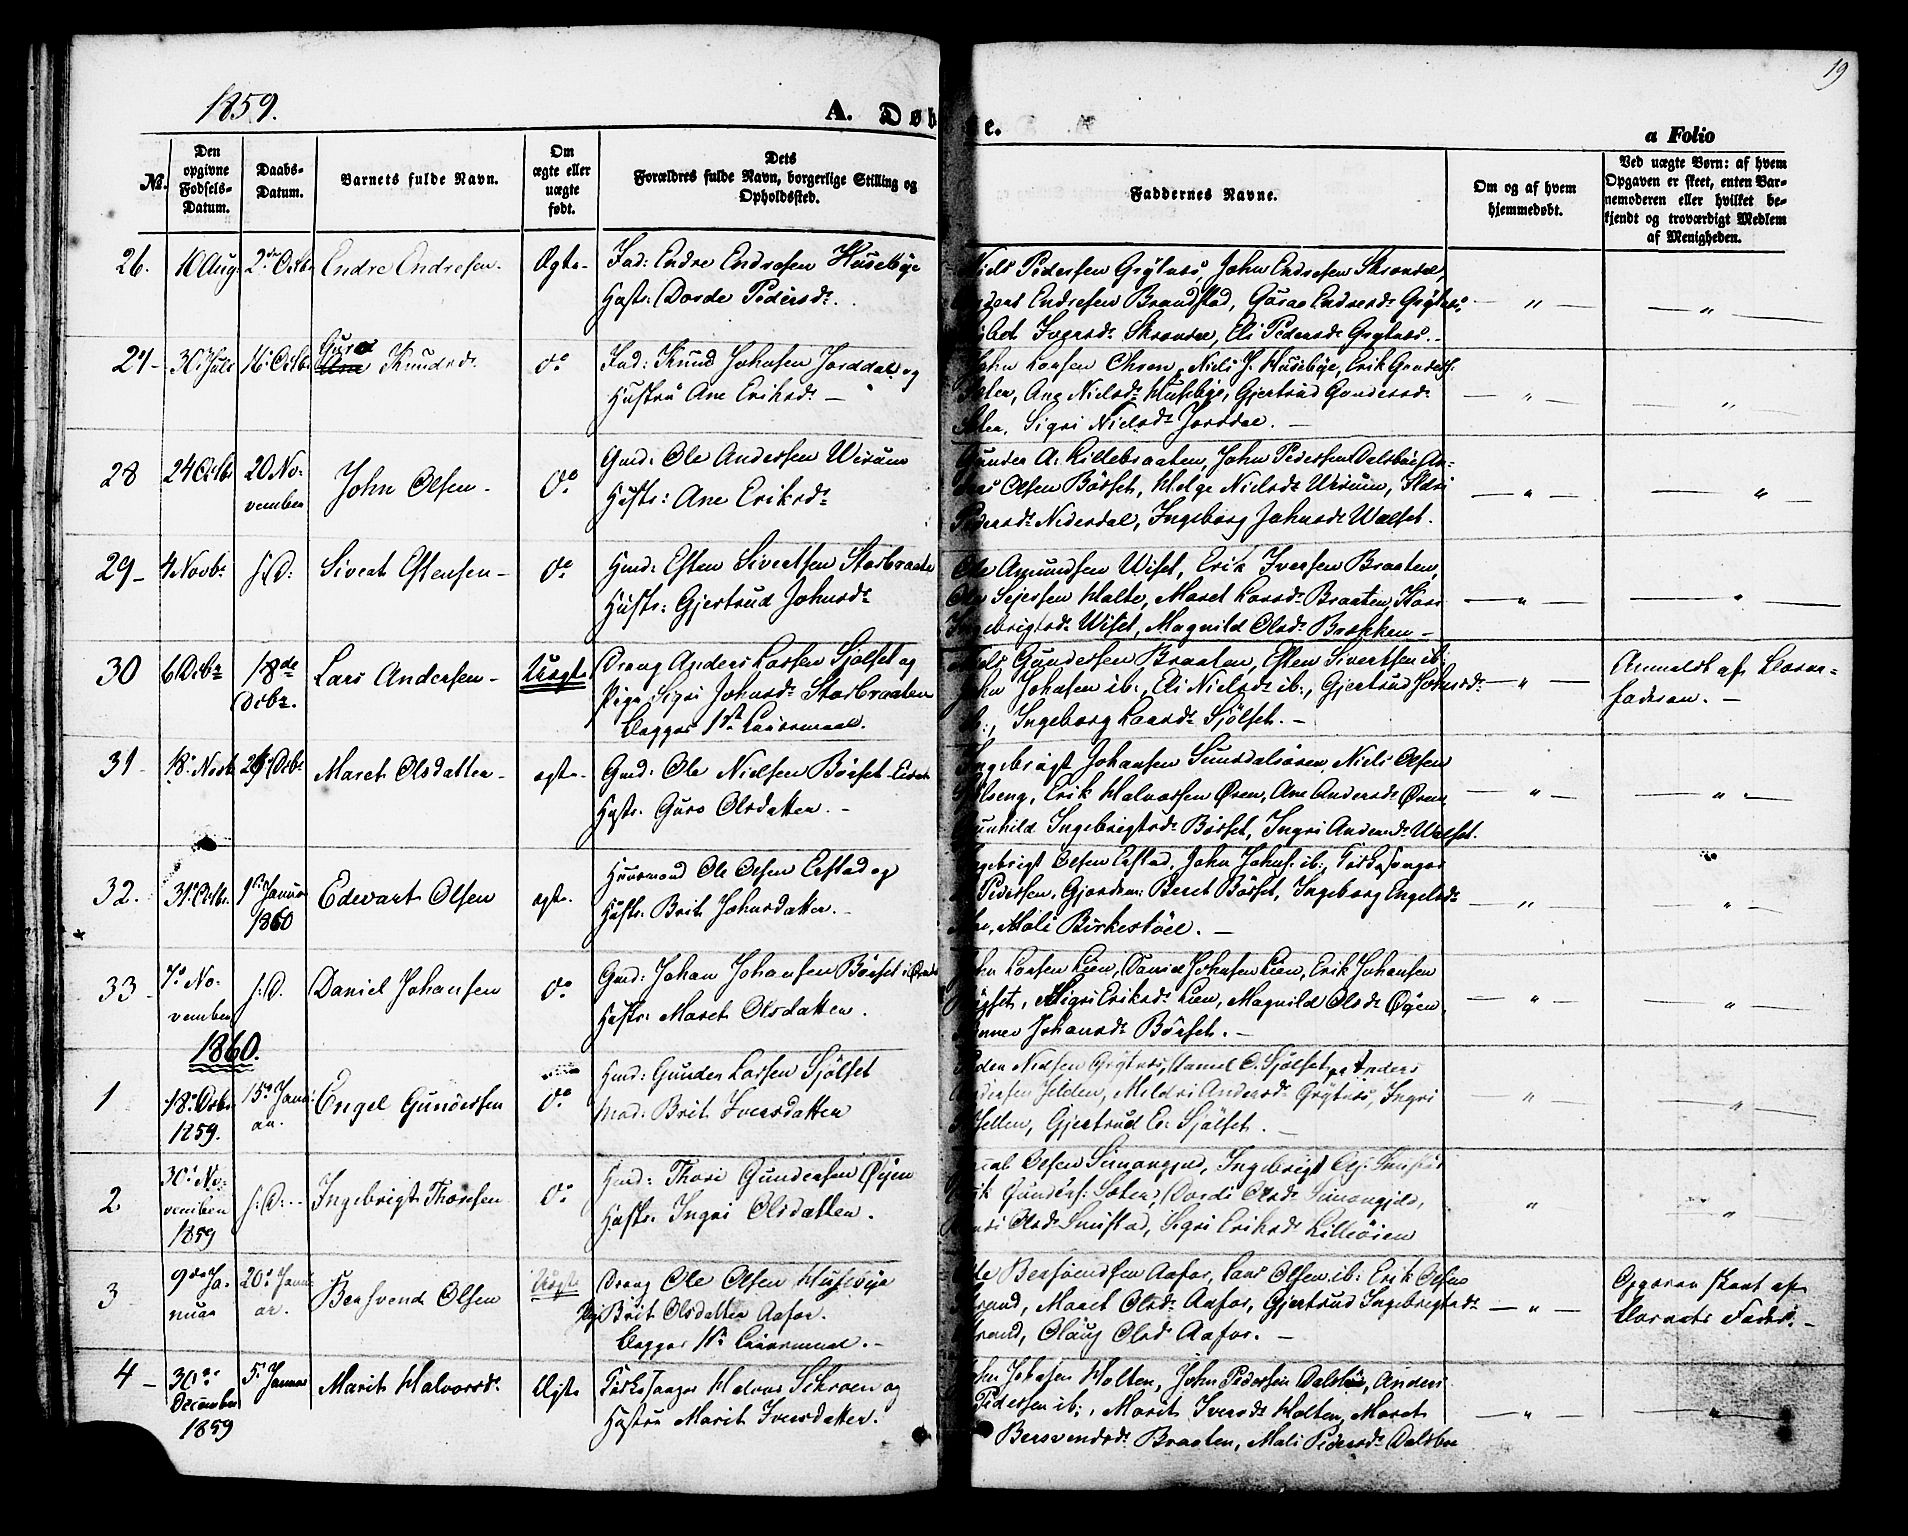 1859.
A. Døb
e.
19
a Folio
No.
Den opgivne Fødsels-Datum.
Daabs-Datum.
Barnets fulde Navn.
Om ægte eller uægte født.
Dets Forældres fulde Navn, borgerlige Stilling og Opholdssted.
Faddernes Navne.
Om og af hvem hjemmedøbt.
Ved uægte Børn: af hvem Opgaven er skeet, enten Barnemoderen eller hvilket bekjendt og troværdigt Medlem af Menigheden.
26. Endre Endresen. Ægte
Endre Endresen Husebye
Hustr: Dorde Pedersd.
Niels Pedersen Grytnes, John Endresen Skrondal,
Endresen Brandstad, Guroe Endresd. Grytnes
Iversd. Skrondal, Eli Pedersd. Grytnes.
27 Guro Knudsd. do
Knud Johnsen Jorddal og
Hustru Ane Eriksd.
John Larsen Ohren, Niels J. Husebye, Erik Gunders.
Ane Nielsd. Husebye, Gjertrud Gundersd.
Sigri Nielsd. Jorddal.
28 24 Octbr 20 November John Olsen do
Gmd: Ole Andersen Virum
Hustr: Ane Eriksd.
Gunder A: Lillebraaten, John Pedersen Dalsbøe An-
Olsen Börset, Helge Nielsd. Virum,
Pedersd. Nederdal, Ingeborg Johnsd. Walset.
29 4 Novbr s: D: Sivert Estensen do
Hmd: Esten Sivertsen Storbraaten
Hustr: Gjertrud Johnsd.
Ole Amundsen Wiset, Erik Iversen Braaten,
Sejersen Holte, Maret Larsd. Braaten, Kari
Ingebrigtsd. Wiset, Magnild Olsd. Bækken
30 6 Decbr 18de Decbr. Lars Andersen Uægte
Dreng Anders Larsen Sjölset og
Pige Sigri Johnsd. Storbraaten
Begges 1ste Leiermaal.
Niels Gundersen Braaten, Esten Sivertsen ib:
John Johnsen ib:, Eli Nielsd. ib:, Gjertrud Johnsd.
ib:, Ingeborg Larsd. Sjölset.
Anmeldt af Barne-
faderen.
31 18 Novb Maret Olsdatter ægte
Gmd: Ole Nielsen Börset
Hustr. Guro Olsdatter.
Ingebrigt Johansen Sunddalsören, Niels Olsen
Erik Halvorsen Øren, Ane Andersd. Øren
Gunhild Ingebrigtsd. Börset, Ingri Andersd. Walset.
32. 31 Octbr. 1ste Januar 1860 Edevart Olsen ægte.
Huusmand Ole Olsen Erstad og
Hustr. Brit Johnsdatter.
Ingebrigt Olsen Erstad, John Johns. ib:, Kirkesanger
Pedersen, Gjordem: Beret Börset, Ingeborg Engelsd.
Mali Birkestöel.
33 7de November s: D. Daniel Johansen do
Gmd: Johan Johansen Börset
Hustr: Maret Olsdatter.
John Larsen Lien, Daniel Johnsen Lien, Erik Johansen
Sigri Eriksd. Lien, Magnild Olsd. Øyen,
Johansd. Börset.
1860.
1 18 Decbr 1859. 15de Januar. Engel Gundersen do
Hmd: Gunder Larsen Sjölset
Brit Iversdatter
Peder Nielsen Grytnes, Daniel E. Sjölset, Anders
Andersen Jelden, Mildri Andersd. Grytnes, Ingri
Gjertrud E: Sjölset.
2 30de November 1859 s: D: Ingebrigt Thoresen do
Hmd: Thore Gundersen Øyen
Hustr. Ingri Olsdatter.
Olsen Simongjerd, Ingebrigt
Erik Gunders: Sæter, Dordi Olsd. Simongjerd,
Olsd. Smistad, Sigri Eriksd. Lilleöien
3 9de Januar 20de Januar. Bersvend Olsen Uægte
Dreng Ole Olsen Husebye
Pige Brit Olsdatter Aafar.
Begges 1ste Leiermaal.
Ole Bersvendsen Aafar, Lars Olsen ib: Erik Olsen
Strand, Maret Olsd. Aafar, Gjertrud Ingebrigtsd.
Strand, Olaug Olsd. Aafar.
Opgaven skeet af
Barnets Fader.
4 30de December 1859 5 Januar Marit Halvorsd. Ægte
Kirkesanger Halvor Schroen og
Hustru Marit Iversdatter.
John Johnsen Holten, John Pedersen Dalsbøe, Anders
Pedersen ib:, Marit Iversd. Holten, Maret
Bersvendsd. Braaten, Mali Pedersd. Dalsbøe